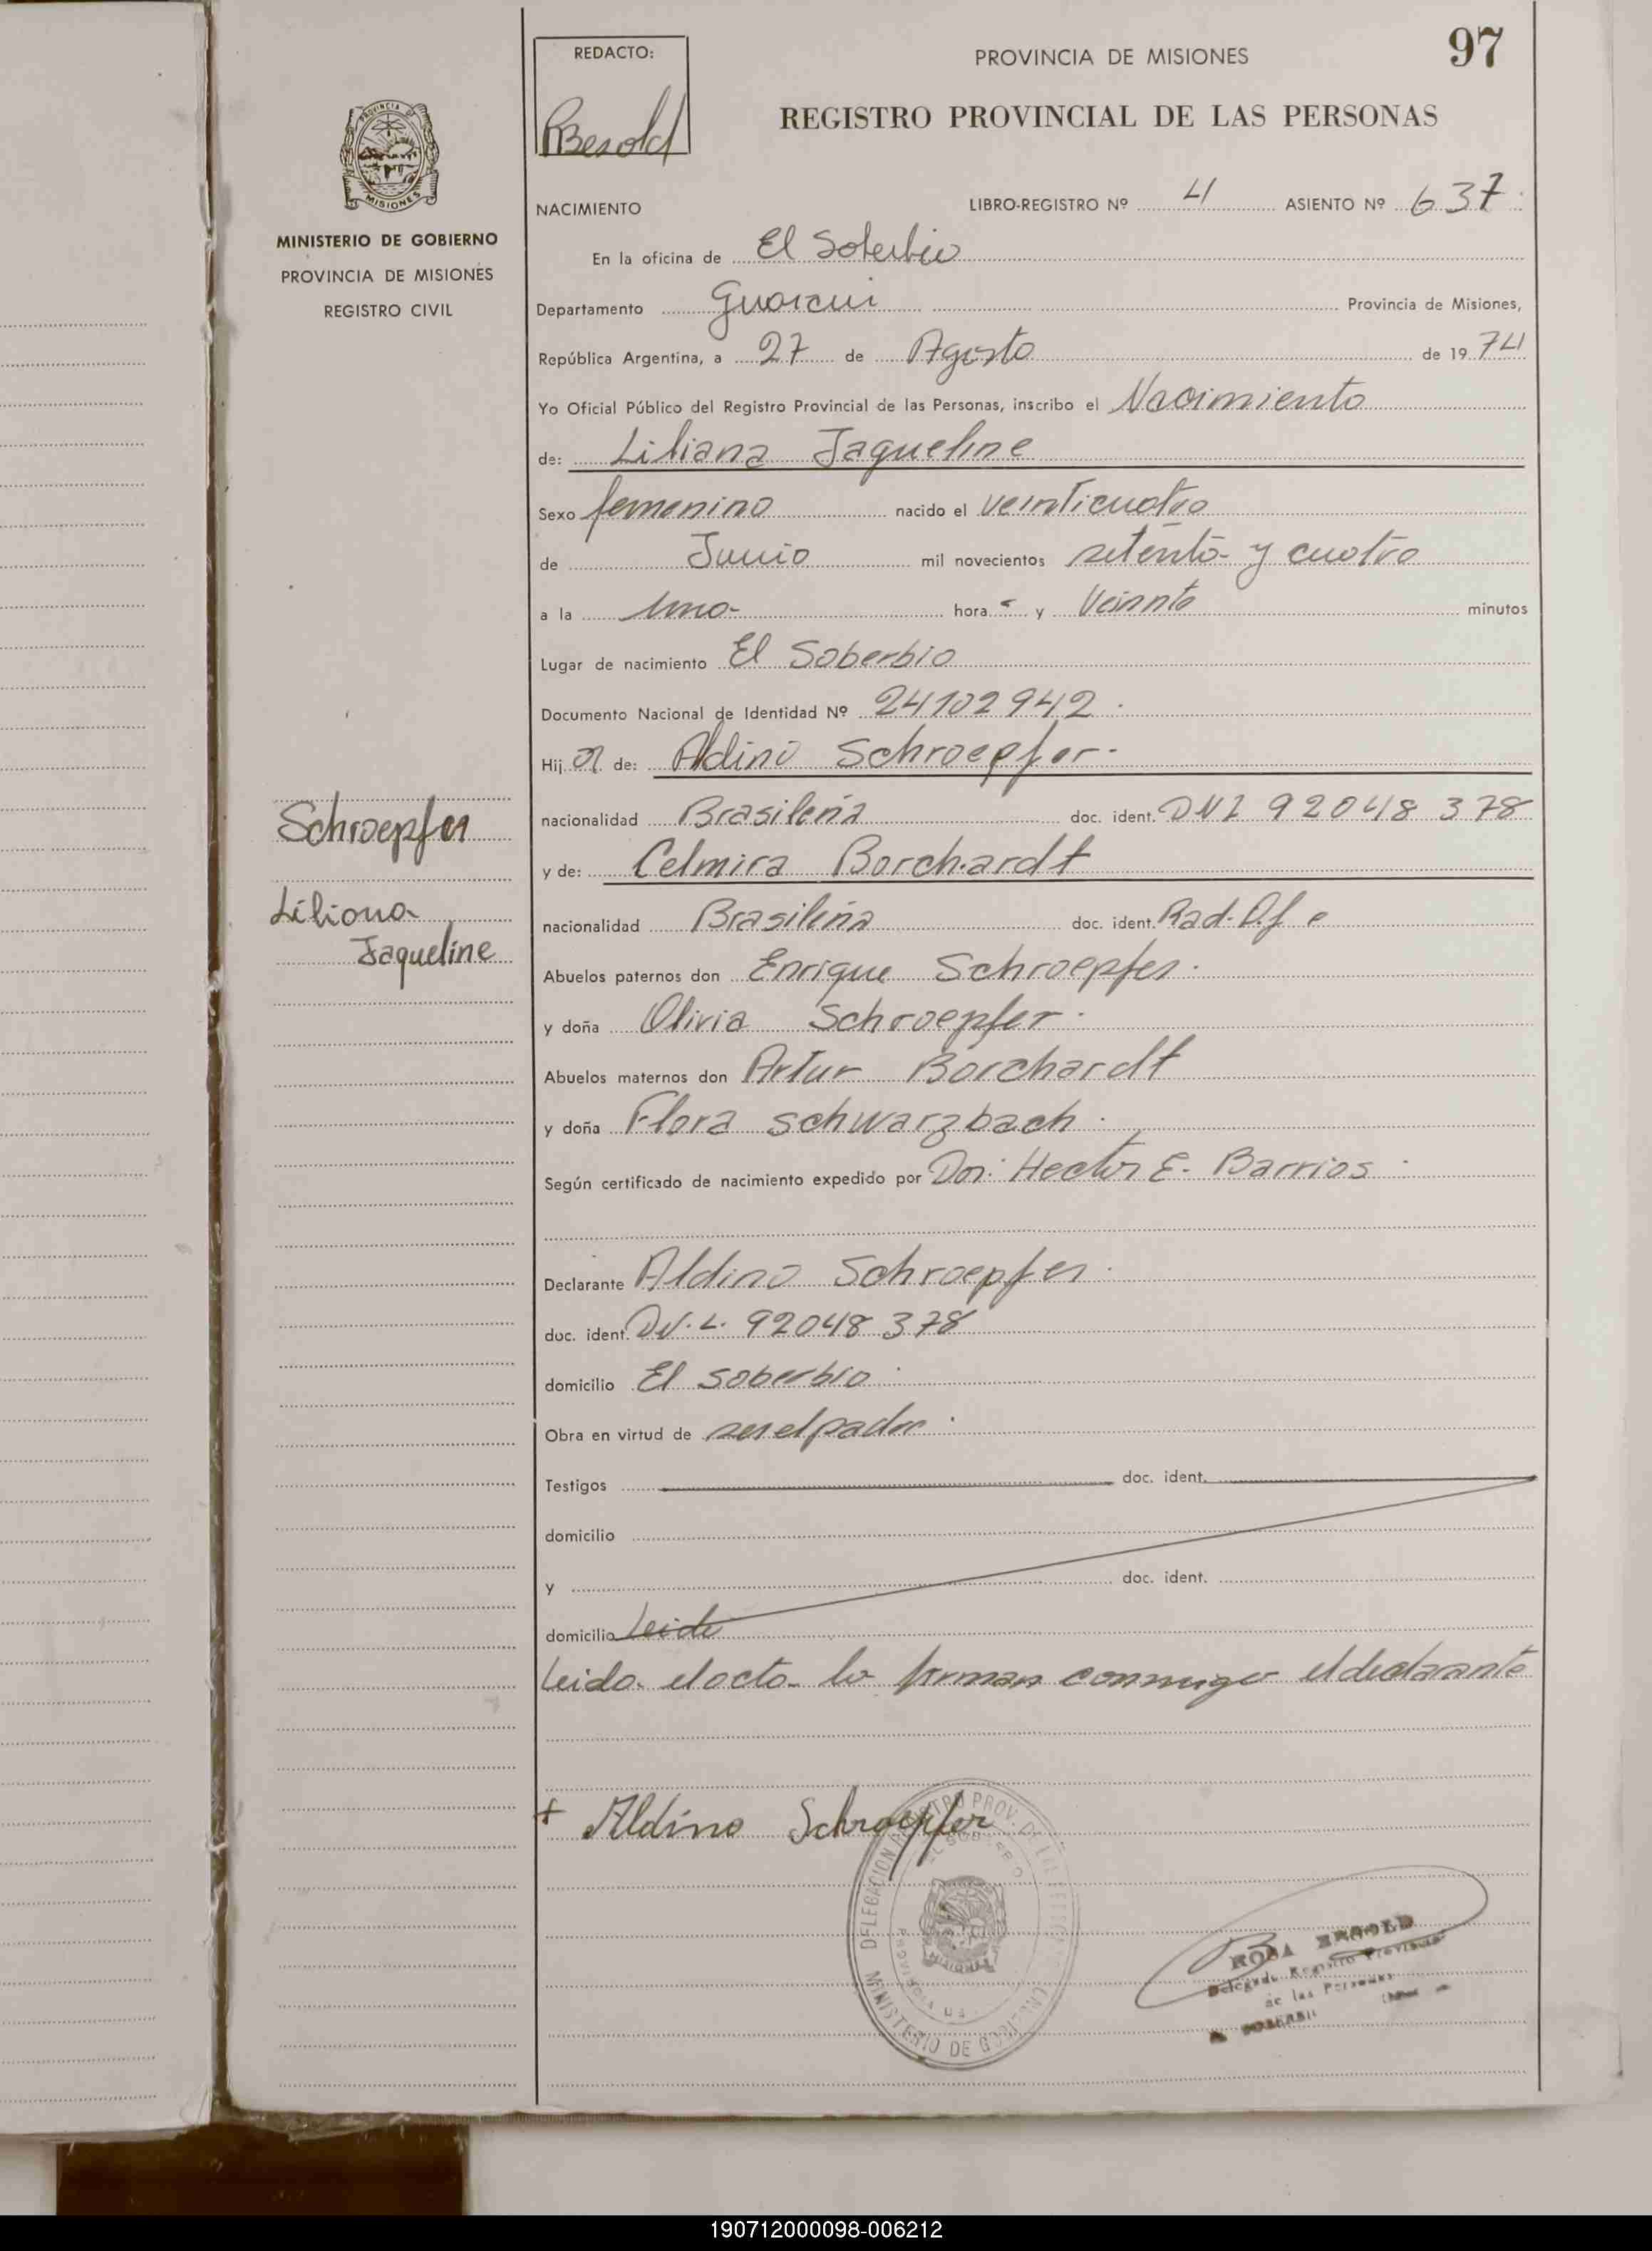 REDACTO:
RBesold
PROVINCIA DE MISIONES
97
REGISTRO PROVINCIAL DE LAS PERSONAS
MISIONES
MINISTERIO DE GOBIERNO
PROVINCIA DE MISIONES
REGISTRO CIVIL
NACIMIENTO
LIBRO-REGISTRO Nº 4 ASIENTO Nº 637
En la oficina de El Soberbio
Departamento Guarani Provincia de Misiones,
República Argentina, a 27 de Agosto de 1974
Yo Oficial Público del Registro Provincial de las Personas, inscribo el Nacimiento
de: Liliana Jaqueline
Sexo femenino nacido el veinticuatro
de Junio mil novecientos setenta y cuatro
a la una hora y Veinnte minutos
Lugar de nacimiento El Soberbio
Documento Nacional de Identidad Nº 24102942
Hija de: Aldino Schroepfer
nacionalidad Brasileña doc. ident. DNI 92048378
y de: Celmira Borchardt
nacionalidad Brasileña doc. ident. Rad.
Abuelos paternos don Enrique Schroepfer
y doña Olivia Schroepfer
Abuelos maternos don Artur Borchardt
y doña Flora Schwarzbach
Según certificado de nacimiento expedido por Dor: Hector E. Barrios
Declarante Aldino Schroepfer
doc. ident. 92048378
domicilio El Soberbio
Obra en virtud de ser el padre
Testigos doc. ident.
domicilio
y doc. ident.
domicilio Leida
Leida el acta la firman conmigo el declarante
Schroepfer
Liliana
Jaqueline
+ Aldino Schroepfer
MINISTERIO DE
DELEGACION
ROSA BESOLD
Delegada Registro Provincial
de las Personas
190712000098-006212